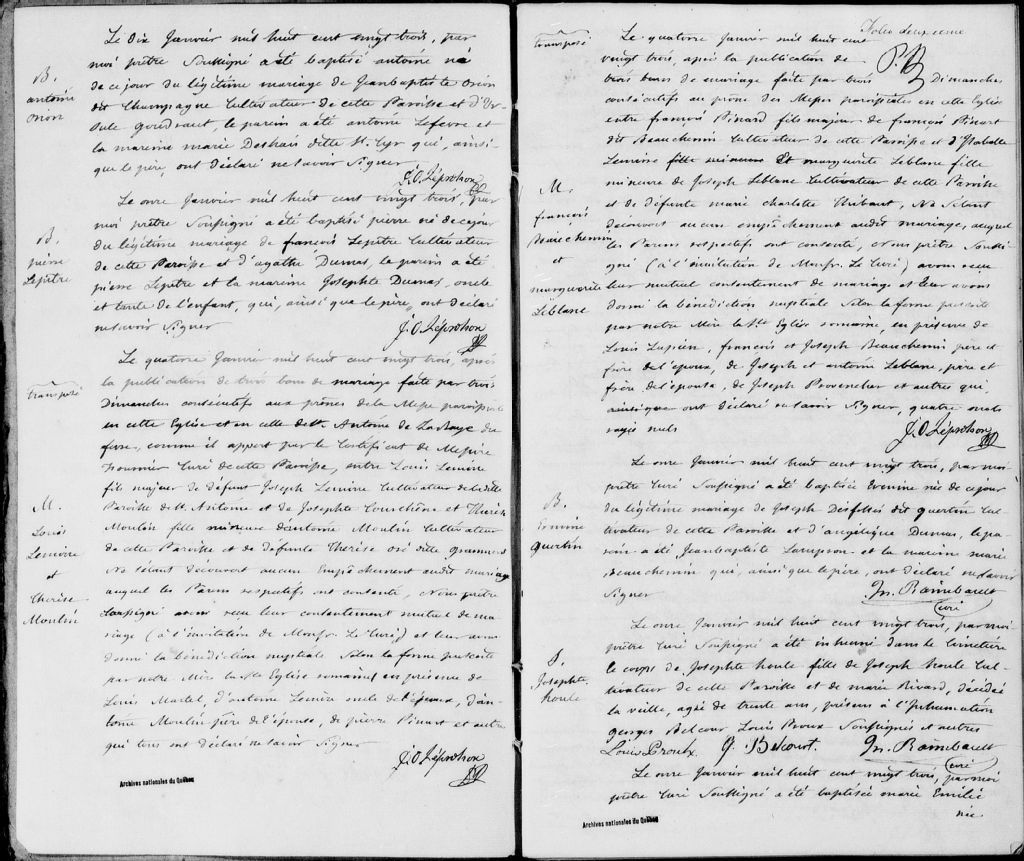 Le Dix Janvier mil huit cent vingt trois, par
moi prêtre Soussigné a été baptisé antoine né
B.
antoine
Orion
de ce jour du légitime mariage de Jeanbaptiste Orion
dit Champagne Cultivateur de cette Paroisse et d'Ur-
sule goudraut, le parein a été antoine Lefevre et
la mareine marie Deshais ditte St. Cyr qui, ainsi
que le père, ont déclaré ne savoir Signer
J. O. Léprohon
Le onze Janvier mil huit cent vingt trois, par
B.
pierre
Lepitre
moi prêtre Soussigné a été baptisé pierre né de ce jour
du légitime mariage de francois Lepitre Cultivateur
de cette Paroisse et d'agathe Dumas, le parein a été
pierre Lepitre et la mareine Josephte Dumas, oncle
et tante de l'enfant, qui, ainsi que le père, ont déclaré
ne savoir Signer
J. O. Léprohon
Le quatorze Janvier mil huit cent vingt trois, après
transposé
la publication de trois bans de mariage faite par trois
Dimanches consécutifs aux prônes de la Messe paroissiale
en cette Eglise et en celle de St. Antoine de la Baye du
febvre, comme il appert par le Certificat de Messire
fournier Curé de cette Paroisse, entre Louis Lemire
fils majeur de défunt Joseph Lemire Cultivateur de la ditte
M.
Louis
Lemire
et
Therèse
Moulin
Paroisse de St. Antoine et de Josephte Courchêne et Therèse
Moulin fille mineure d'antoine Moulin Cultivateur
de cette Paroisse et de défunte Therèse
Ne s'étant découvert aucun Empêchement audit mariage
auquel les Parens respectifs ont consenté, Nous prêtre
Soussigné avons recu leur consentement mutuel de ma-
riage (à l'invitation de Monsr. Le Curé) et leur avons
donné la bénédiction nuptiale Selon la forme prescrite
par notre Mère la Ste Eglise romaine en présence de
Louis Martel, d'antoine Lemire oncle de l'époux, d'an-
toine Moulin père de l'épouse, de pierre Pinart et autres
qui tous ont déclaré ne savoir Signer
J. O. Léprohon
Archives nationales du Québec
folio deuxieme
transposé
Le quatorze Janvier mil huit cent
vingt trois, après la publication de
trois bans de mariage faite par trois Dimanches
consécutifs au prône des Messes paroissiales en cette Eglise
entre francois Pinard fils majeur de francois Pinart
dit Beauchemin Cultivateur de cette Paroisse et d'Isabelle
Lemire fille mineure et marguerite Leblanc fille
M.
françois
Beauchemin
et
marguerite
Leblanc
mineure de Joseph Leblanc Cultivateur de cette Paroisse
et de défunte marie charlotte Thibaut, Ne S'étant
découvert aucun empêchement audit mariage, auquel
les Parens respectifs ont consenté, nous prêtre Soussi-
gné (à l'invitation de Monsr. Le Curé) avons recu
leur mutuel consentement de mariage et leur avons
donné la bénédiction nuptiale Selon la forme prescrite
par notre Mère la Ste Eglise romaine, en présence de
Louis Lupien, francois et Joseph Beauchemin père et
frère de l'époux, de Joseph et antoine Leblanc, père et
frère de l'épouse, de Joseph Provencher et autres qui
ainsi que ont déclaré ne savoir Signer, quatre mots
rayés nuls
J. O. Léprohon
Le onze Janvier mil huit cent vingt trois, par moi
B.
quertin
prêtre Curé Soussigné a été baptisée née de ce jour
du légitime mariage de Joseph Desfossés dit quertin Cul-
tivateur de cette Paroisse et d'angélique Dumas, le pa-
rein a été Jeanbaptiste Lampron et la mareine marie
Beauchemin qui, ainsi que le père, ont déclaré ne savoir
Signer
Jn. Raimbault
Curé
Le onze Janvier mil huit cent vingt trois, par moi
S.
Josephte
houle
prêtre Curé Soussigné a été inhumé dans le cimetière
le corps de Josephte houle fille de Joseph houle Cul-
tivateur de cette Paroisse et de marie Rivard, décédée
la veille, agée de trente ans, présens à l'Inhumation
georges Belcour Louis Proux Soussignés et autres
Louis Proulx. G. Belcourt. Jn. Raimbault
Curé
Le onze Janvier mil huit cent vingt trois, par moi
prêtre Curé Soussigné a été baptisée marie Emilie
née
Archives nationales du Québec